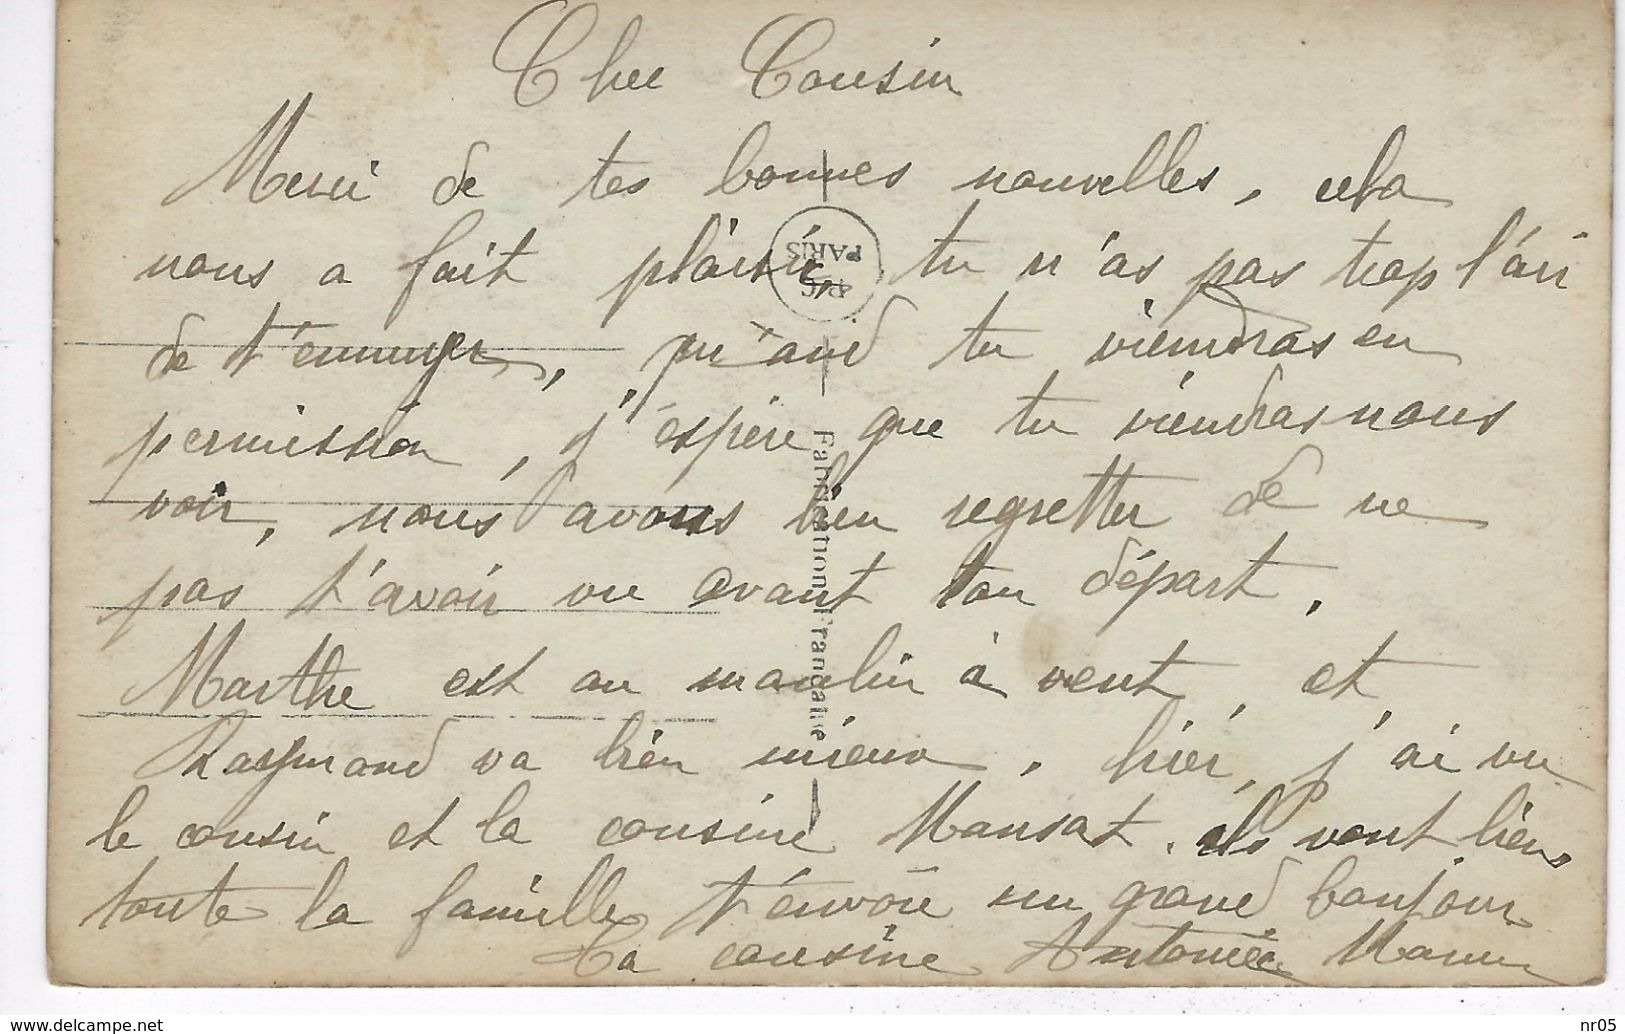 Cher Cousin
Merci de tes bonnes nouvelles, cela
nous a fait plaisir, tu n'as pas trop l'air
de t'ennuyer, quand tu viendras en
permission, j'espère que tu viendras nous
voir, nous avons bien regretter de ne
pas t'avoir vu avant ton départ.
Marthe est au moulin à vent, et
Raymond va bien mieux, hier, j'ai vu
le cousin et la cousine Mansat. ils vont bien,
toute la famille t'envoie un grand bonjour
Ta cousine Antoinée
PC
PARIS
Fabrication Française
www.delcampe.net
nr05